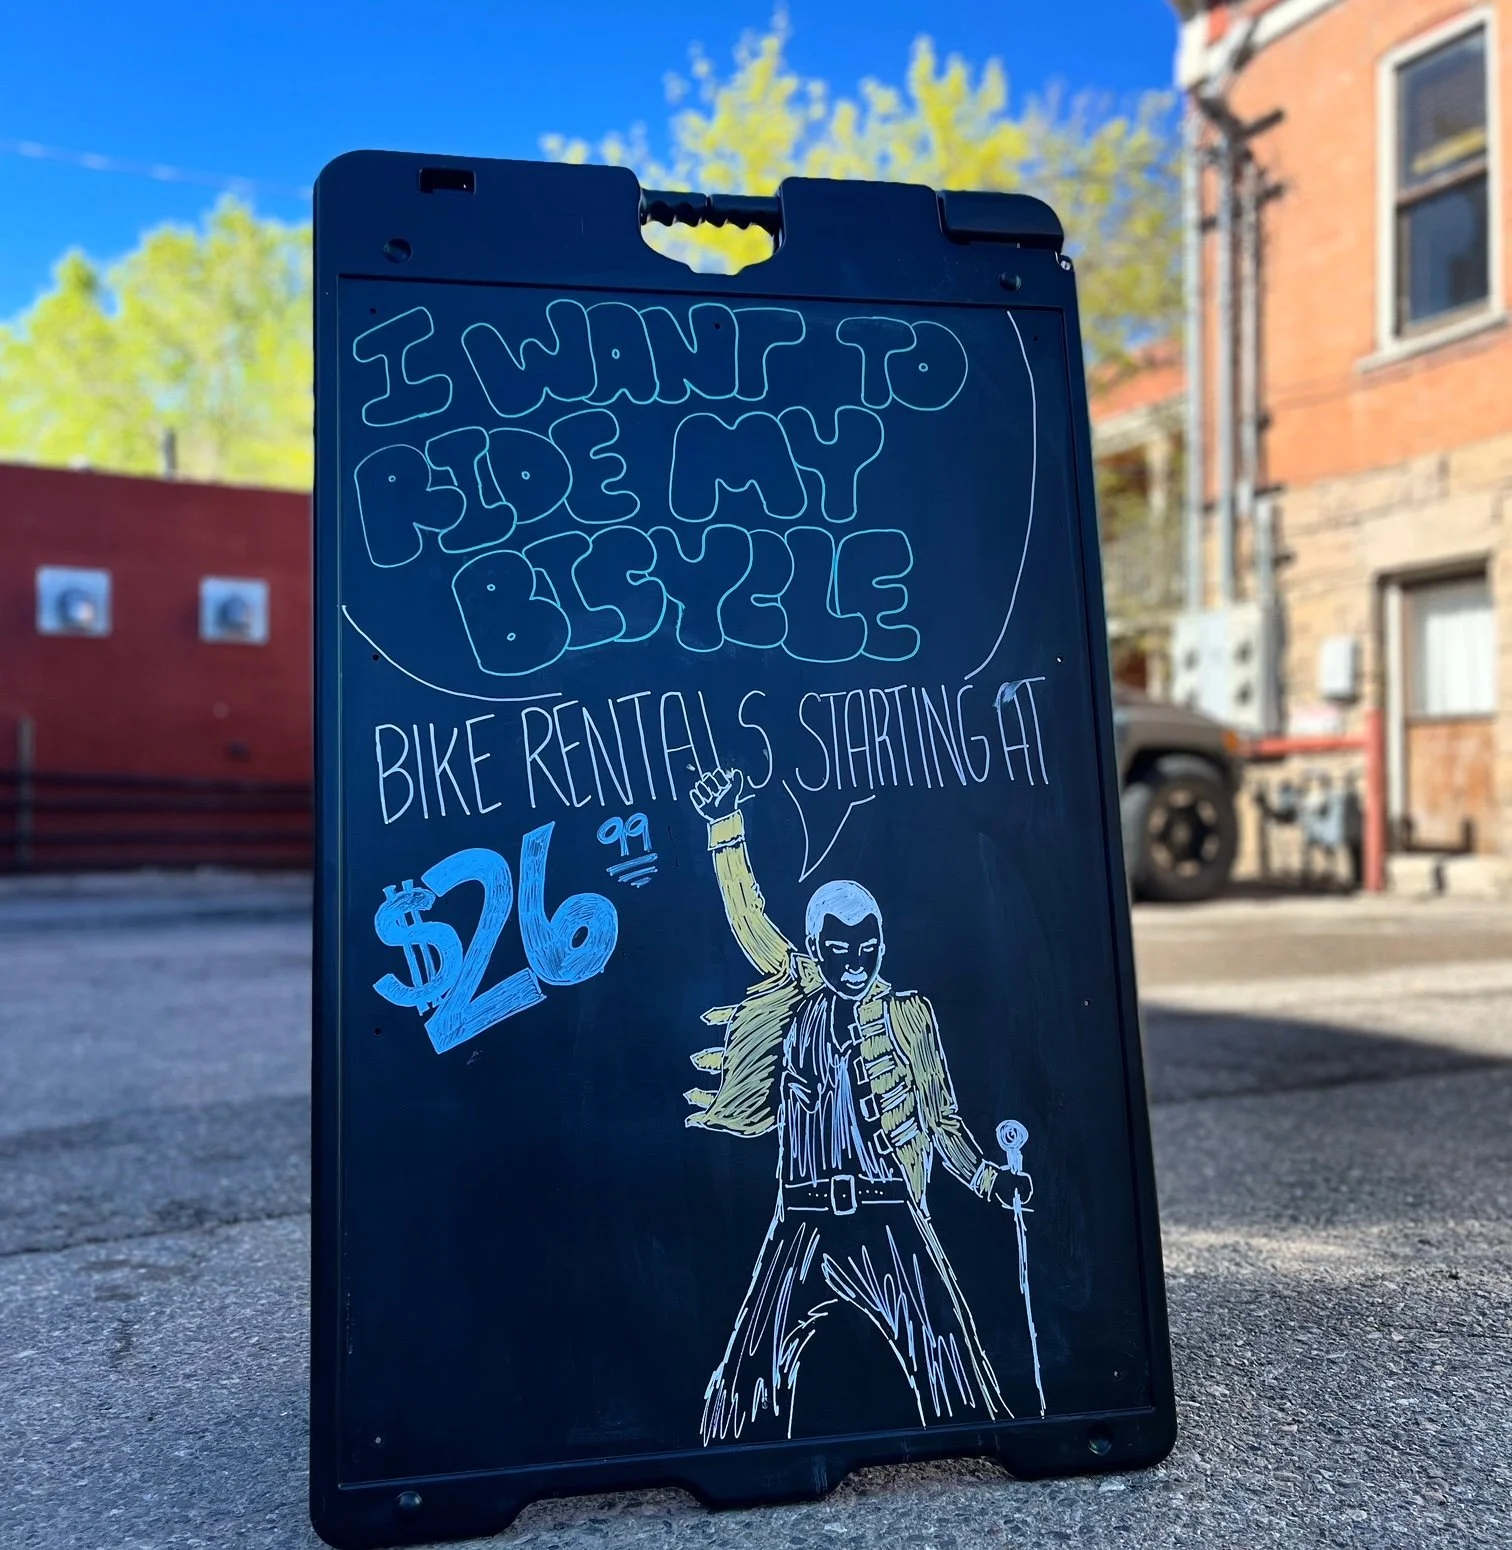 I WANT TO
RIDE MY
BICYCLE
BIKE RENTALS STARTING AT
$26.99